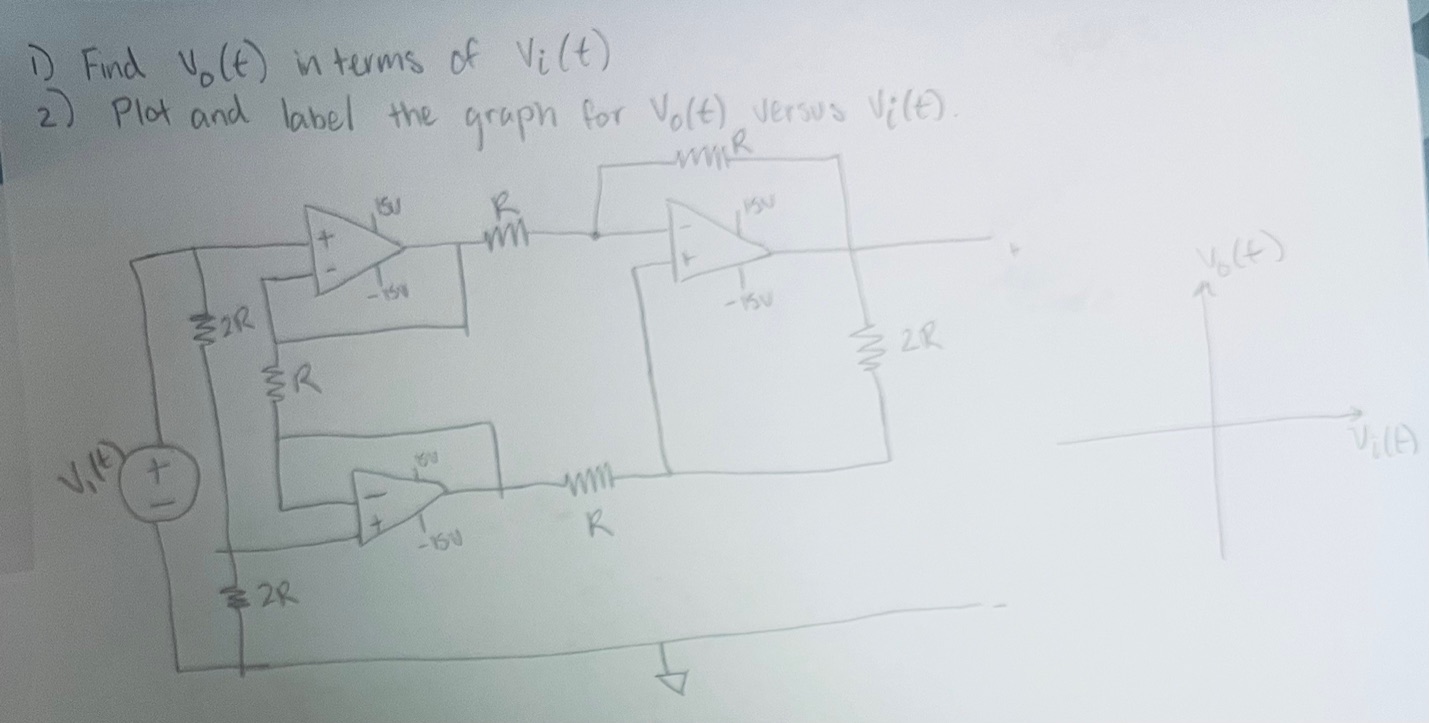 1) Find Vo(t) in terms of Vi(t)
2) Plot and label the graph for Vo(t) versus Vi(t).
R
15V
R
15V
+
-
-15V
-
+
-15V
+
Vo(t)
2R
2R
R
Vi(t)
Vi(t)
+
-
15V
-
+
-15V
R
2R
-